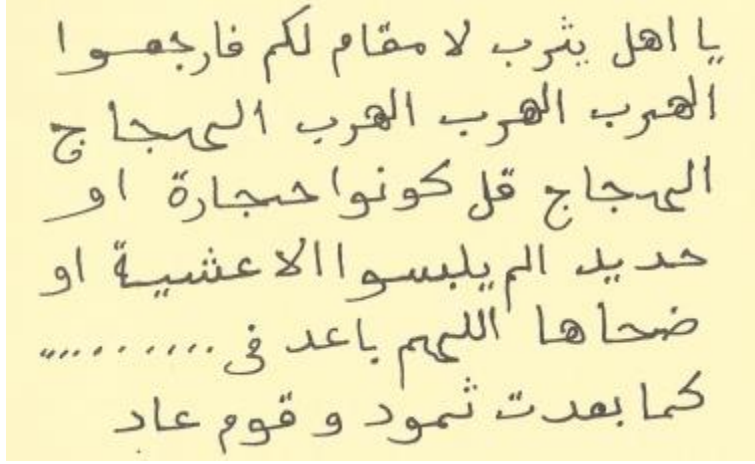 يا اهل يثرب لا مقام لكم فارجعوا
الهرب الهرب الهرب المهجاج
المهجاج قل كونوا حجارة او
حديد الم يلبسوا الا عشية او
ضحاها اللهم باعد فى ..........
كما بعدت ثمود و قوم عاد